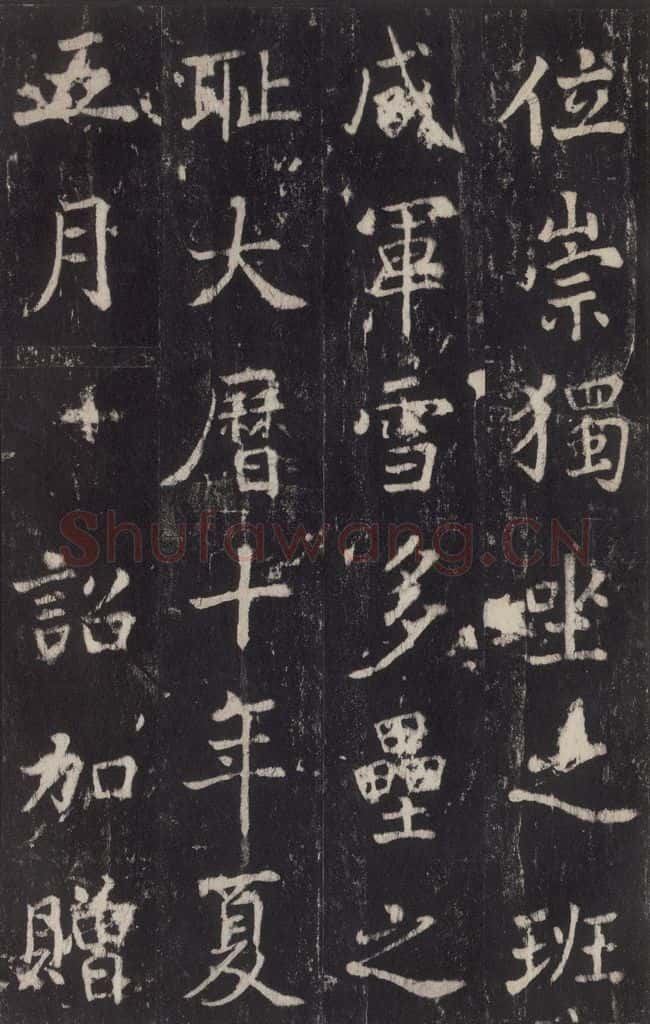 位崇獨坐之班
威軍雪多壘之
耻大曆十年夏
五月十詔加贈
Shufawang.CN